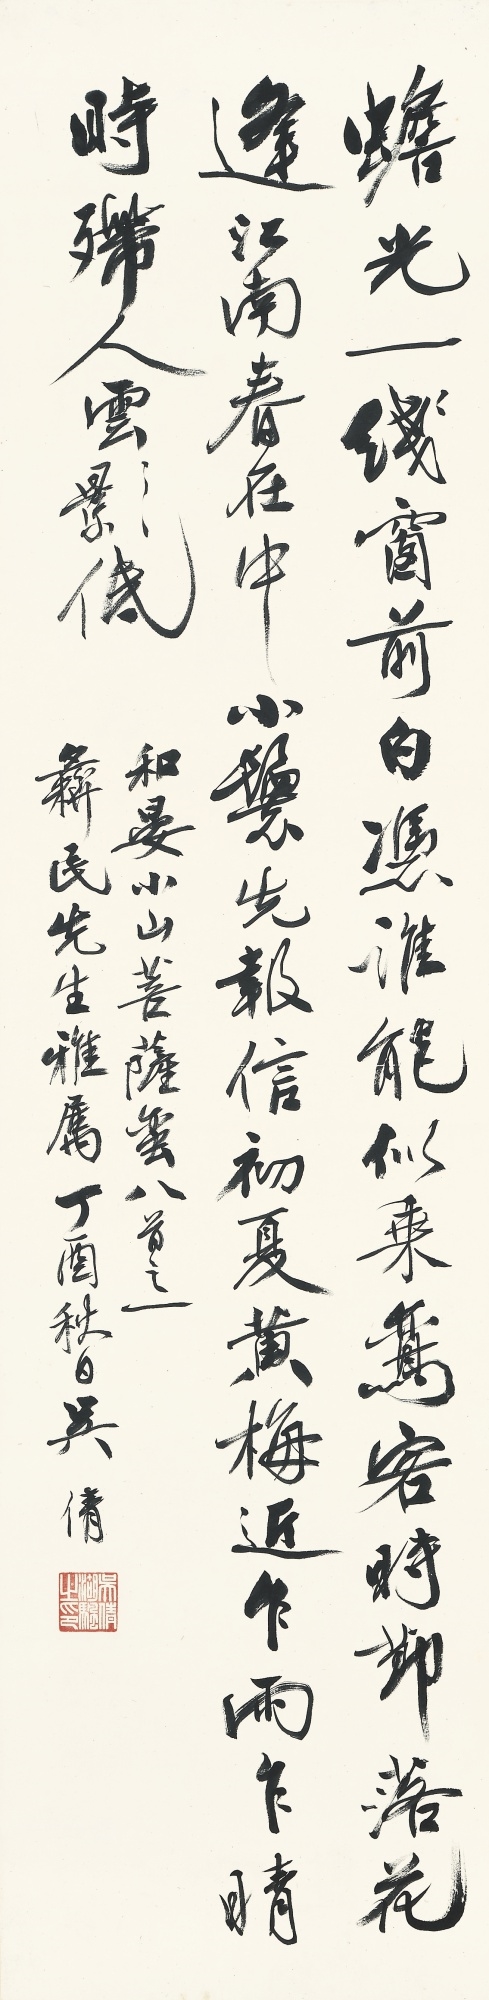 蟾光一綫窗前白憑誰能似乘鸞客時節落花
逢江南春在中小鬟先報信初夏黃梅近乍雨乍晴
時殢人雲影低
和晏小山菩薩蠻八首之一
彝民先生雅屬丁酉秋日吳倩